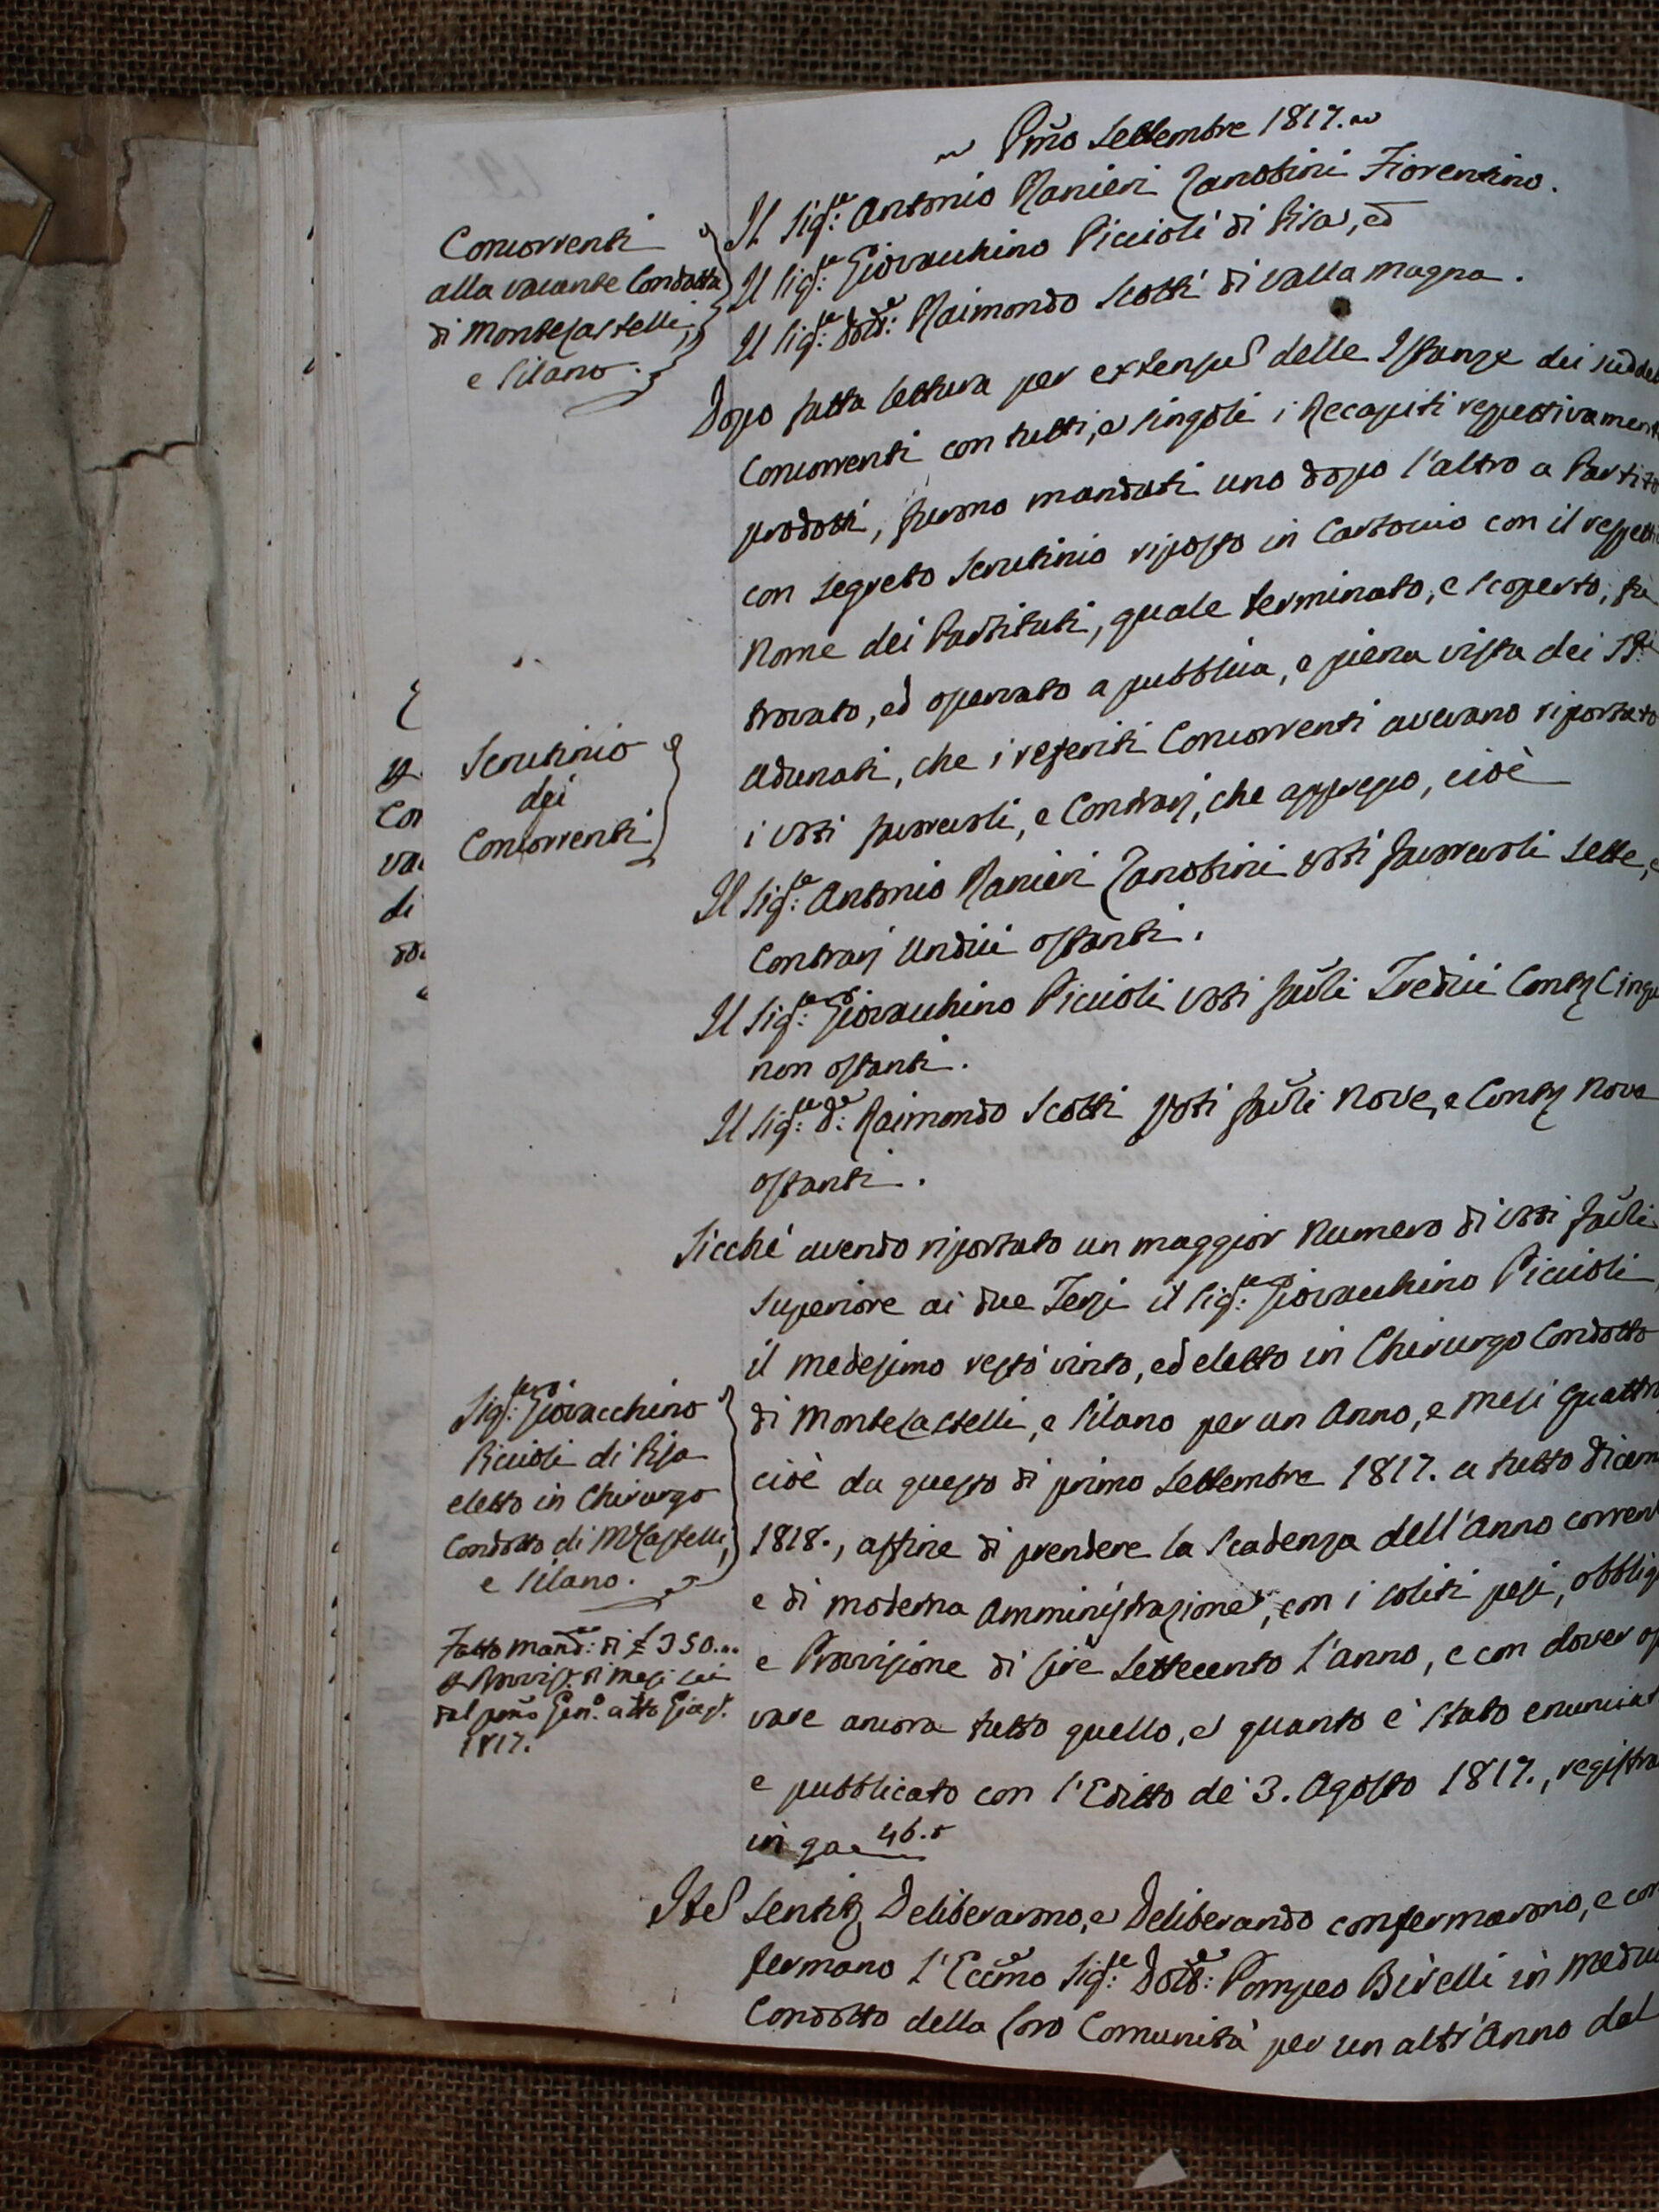 ~ Pmo Settembre 1817. ~
Concorrenti
alla vacante Condotta
di MonteCastelli,
e Silano.
Il Sigre: Antonio Ranieri Zanobini Fiorentino.
Il Sigre: Giovacchino Piccioli di Pisa, ed
Il Sigre: Dotte: Raimondo Scotti di Valla magna.
Dopo fatta lettura per extensum delle Istanze dei sudde
Concorrenti con tutti, e singoli i Recapiti respettivament
prodotti, furono mandati uno dopo l'altro a Partito
con segreto Scrutinio riposto in Cartoccio con il respetti
Nome dei Partitati, quale terminato, e scoperto, fu
trovato, ed osservato a pubblica, e piena vista dei SSri
Adunati, che i referiti Concorrenti avevano riportato
i voti favorevoli, e Contrarj, che appresso, cioè
Scrutinio
dei
Concorrenti
Il Sigre: Antonio Ranieri Zanobini voti favorevoli Sette, e
Contrarj Undici ostanti.
Il Sigre: Giovacchino Piccioli voti favli Tredici Contrj Cinqu
non ostanti.
Il Sigre: De: Raimondo Scotti voti favli Nove, e Contrj Nove
ostanti.
Sicché avendo riportato un maggior Numero di voti favli
Superiore ai due Terzi il Sigre: Giovacchino Piccioli,
il medesimo restò vinto, ed eletto in Chirurgo Condotto
di MonteCastelli, e Silano per un Anno, e Mesi quattro
cioè da questo dì primo Settembre 1817. a tutto Dicem
1818., affine di prendere la Scadenza dell'Anno corrent
e di moderna Amministrazione, con i soliti pesi, obblig
e Provvisione di Lire Settecento l'anno, e con dover os
vare ancora tutto quello, e quanto è stato enunciat
e pubblicato con l'Editto de' 3. Agosto 1817., registra
in qa 46.
Sigre: Giovacchino
Piccioli di Pisa
eletto in Chirurgo
Condotto di MCastelli,
e Silano.
Fatto mando: di £ 350...
Provvis. di Mesi sei
dal pmo Genn. a tto Giug.
1817.
Item Sentitj Deliberarono, e Deliberando confermarono, e con
fermano l'Eccmo Sigre: Dotte: Pompeo Birelli in Medic
Condotto della loro Comunità per un altr'Anno dal